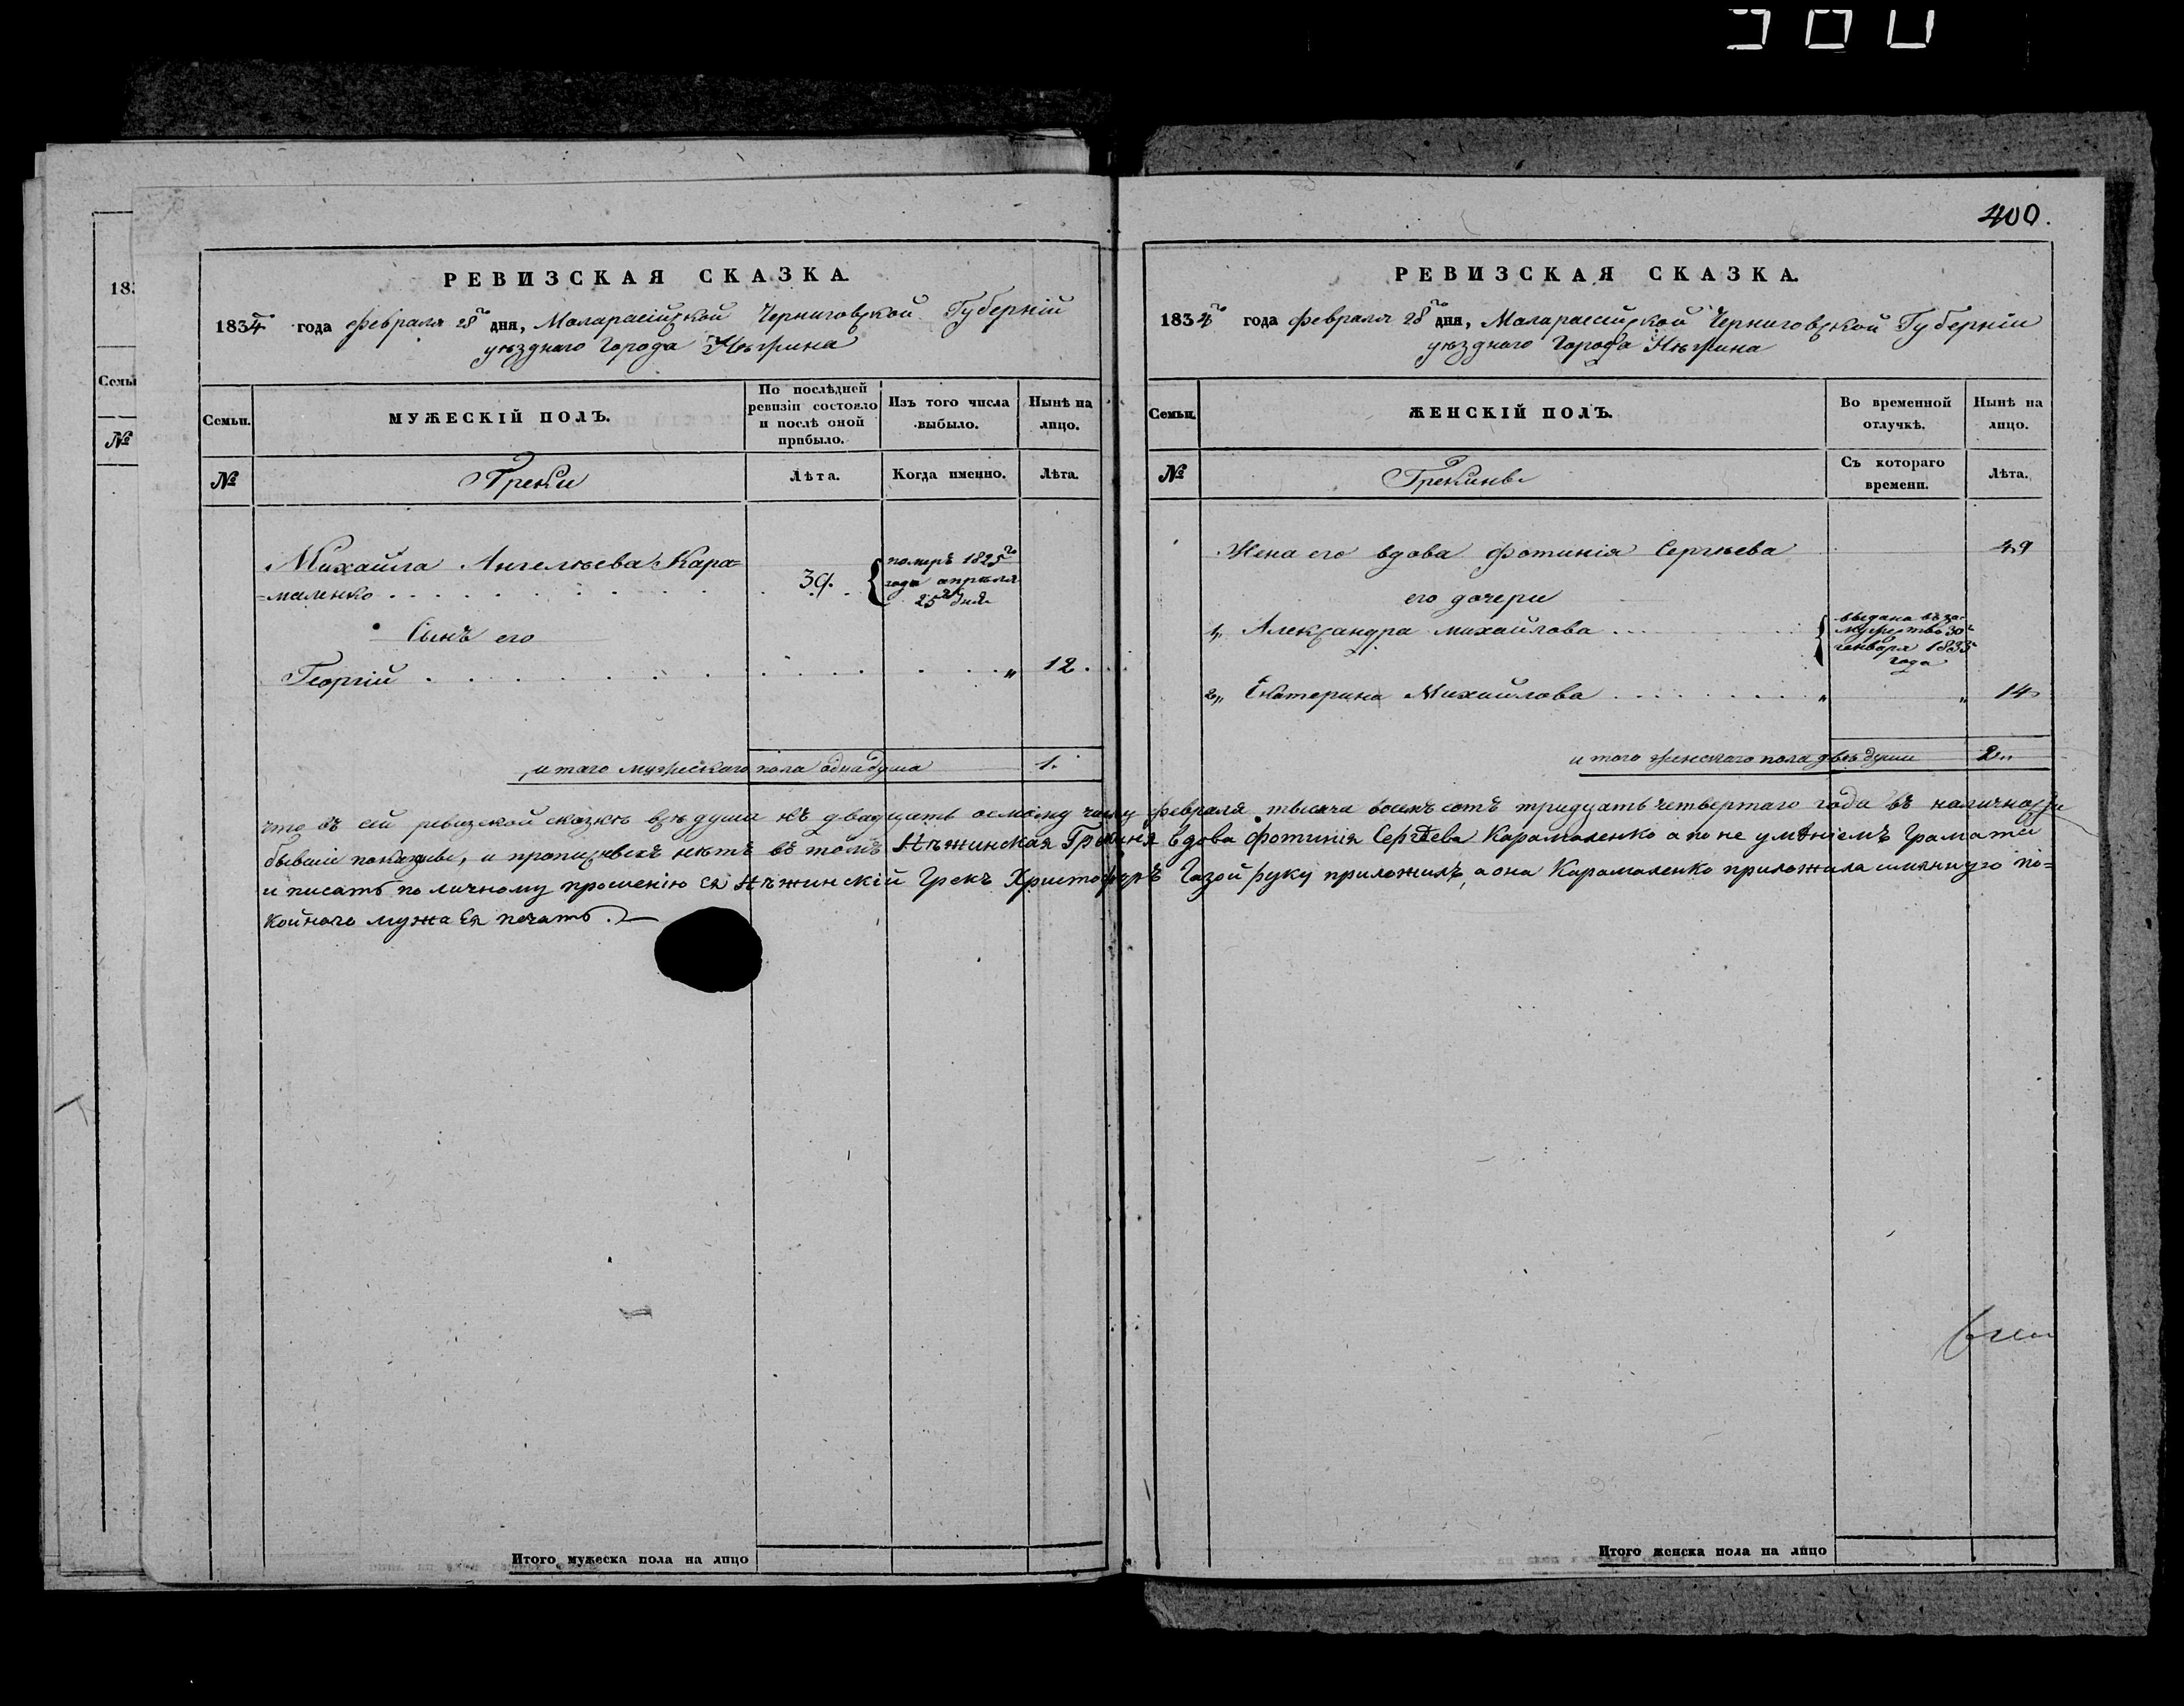 400.
РЕВИЗСКАЯ СКАЗКА.
1834го года февраля 28го дня, Маларасійской Черниговской Губерніи
уезднаго Города Нежина
Семьи.
МУЖЕСКІЙ ПОЛЪ.
По послѣдней ревизіи состояло и послѣ оной прибыло.
Изъ того числа выбыло.
Нынѣ на лицо.
№
Греки
Лѣта.
Когда именно.
Лѣта.
Михайла Ангелѣева Кара=
=маленко . . . 39. помръ 1825го
года апреля
25 дня
Сынъ его
Георгій . . . „ 12.
итого мужескаго пола одна душа 1.
РЕВИЗСКАЯ СКАЗКА.
1834го года февраля 28го дня, Маларассійской Черниговской Губерніи
уезднаго Города Нежина
Семьи.
ЖЕНСКІЙ ПОЛЪ.
Во временной отлучкѣ.
Нынѣ на лицо.
№
Грекини
Съ котораго времени.
Лѣта.
Жена его вдова Фотинія Сергѣева 49
его дочери
1„ Александра Михайлова . . . выдана въ за-
мужство 30го
генваря 1833
года
2„ Екатерина Михайлова . . . „ „ 14
итого женскаго пола двѣ души 2„
что въ сей ревизской сказкѣ всѣ души къ двадцать осмому числу февраля тысяча восемъ сотъ тридцать четвертаго года въ наличности
бывшіе показаны, и прописныхъ нѣтъ въ томъ Нѣжинская Грекиня вдова Фотинія Сергѣева Карамаленко а по не умѣніемъ Граматы
и писать по личному прошенію ея Нѣжинскій Грекъ Христофоръ Газой руку приложилъ, а она Карамаленко приложила имянную по=
койнаго мужа Ея печать.
Итого мужеска пола на лицо
Итого женска пола на лицо
183
Семьи
№